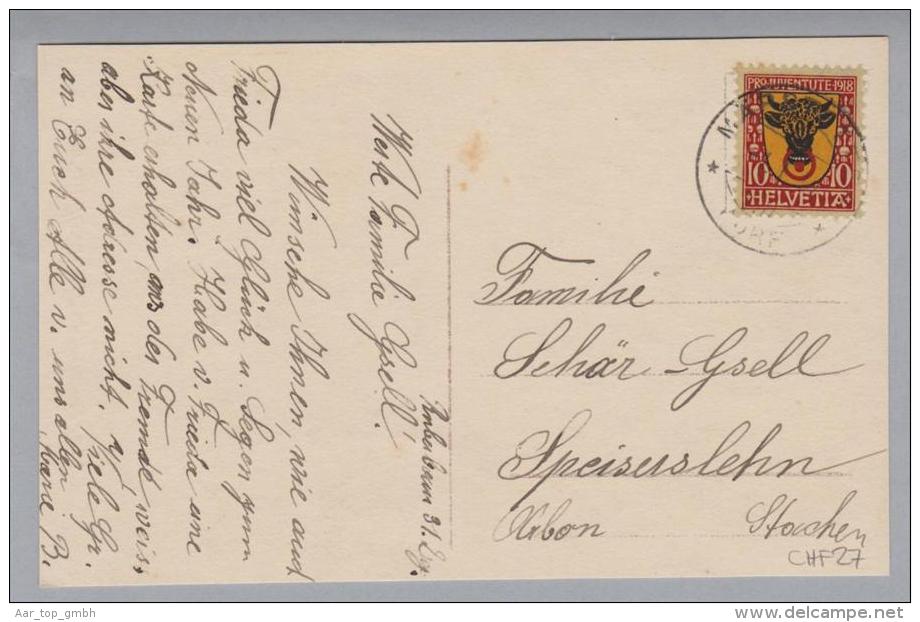 31. Dez.
Werte Familie Gsell!
Wünsche Ihnen, wie auch
Frieda viel Glück u. Segen zum
Neuen Jahr. Habe v. Frieda eine
Karte erhalten, aus der Fremde, weiss
aber ihre Adresse nicht. Viele Gr.
an Euch Alle v. uns allen
B.
PRO JUVENTUTE·1918
10 10
HELVETIA
Familie
Schär-Gsell
Speiserslehn
Arbon Stachen
CHF27
Aar_top_gmbh
www.delcampe.net